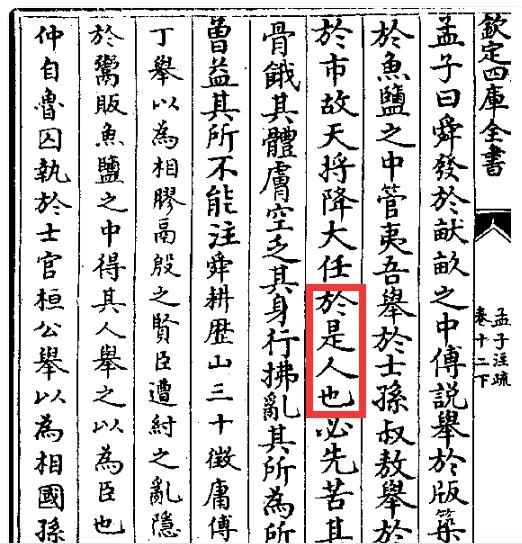 欽定四庫全書
孟子注疏
卷十二下
孟子曰舜發於畎畝之中傅說舉於版築
於魚鹽之中管夷吾舉於士孫叔敖舉於
於市故天將降大任於是人也必先苦其
骨餓其體膚空乏其身行拂亂其所為所
曾益其所不能注舜耕歴山三十徵庸傅
丁舉以為相膠鬲殷之賢臣遭紂之亂隱
於鬻販魚鹽之中得其人舉之以為臣也
仲自魯囚執於士官桓公舉以為相國孫